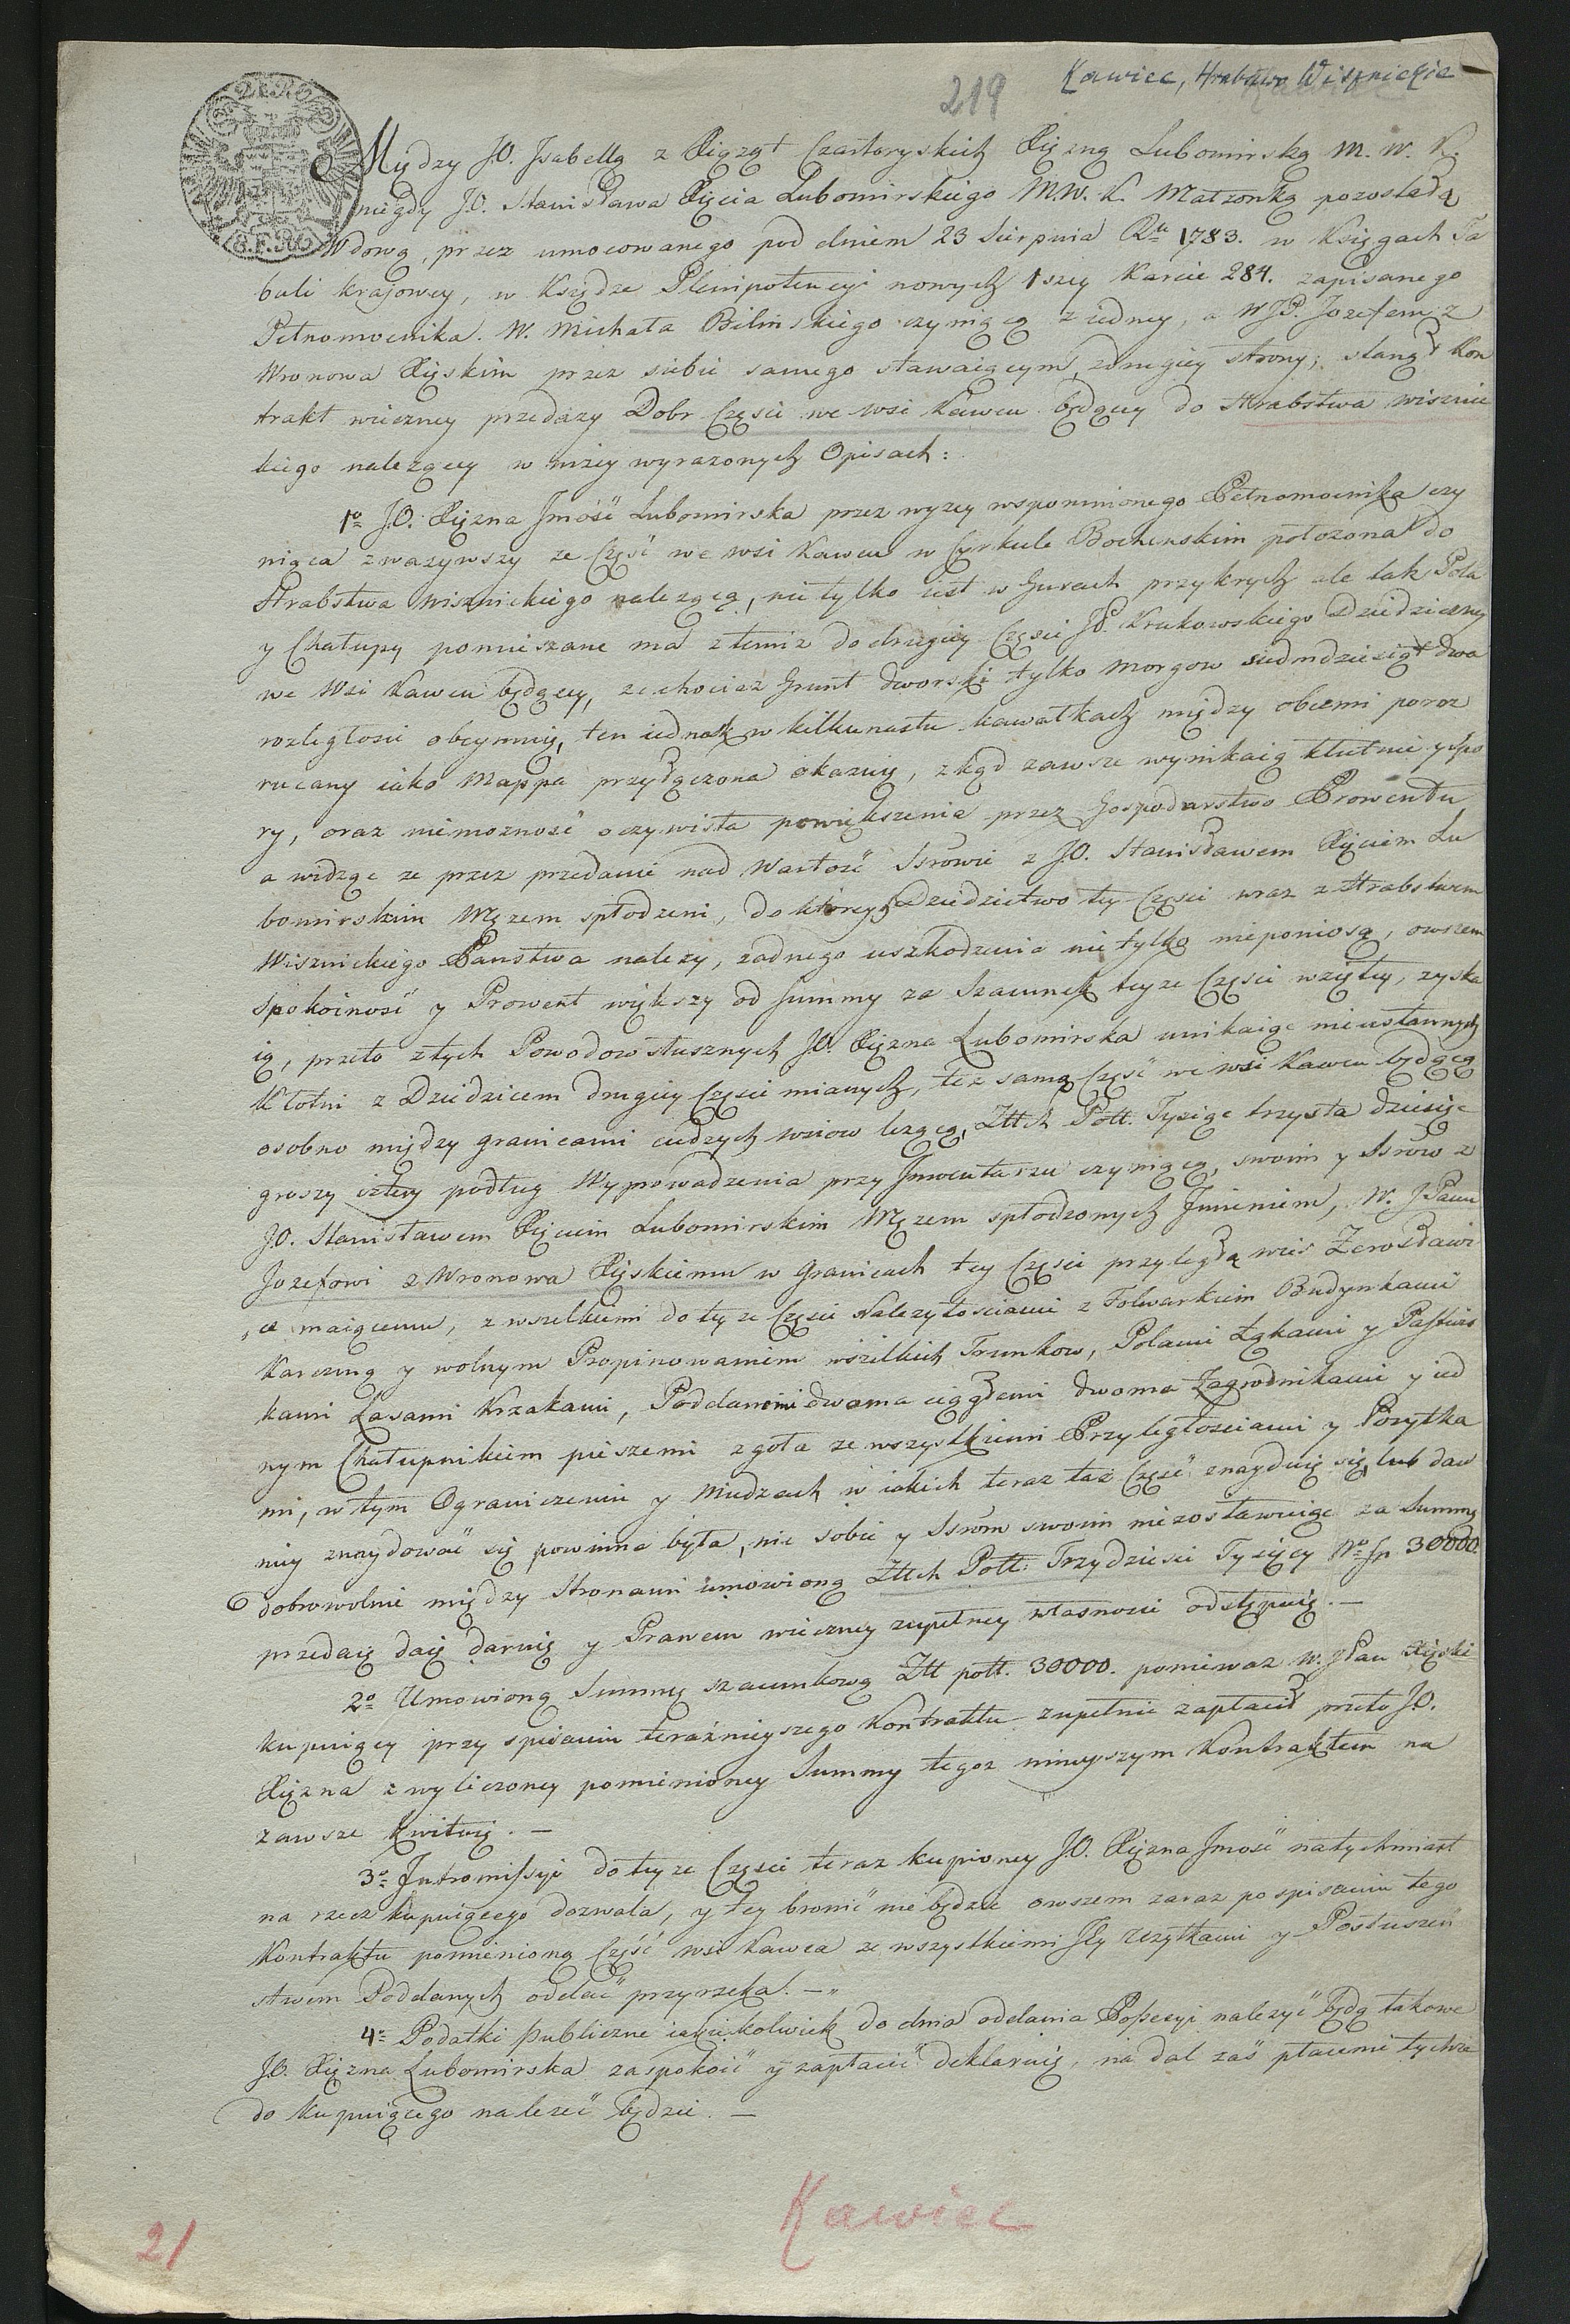 Kawiec, Hrabstwo Wisznickie
219
Między JO. Isabellą z Xiążąt Czartoryskich Xiężną Lubomirską M. W. K.
niegdy JO. Stanisława Xięcia Lubomirskiego M.W. K. Matzonką pozostałą
Wdową, przez umocowanego pod dniem 23 Sierpnia Ru 1783. w Księgach Ta
buli krajowey, w Księdze Plenipotencyi nowych 1szey Karcie 284. zapisanego
Pełnomocnika. W. Michała Bilinskiego czyniącą z iedney, a WJP. Jozefem z
Wronowa Xięskim przez siebie samego stawaiącym, z drugiey strony; stanął Kon
trakt wieczney przedazy Dobr Części we wsi Kawcu będącey do Hrabstwa wisznic
kiego nalezącey w niżey wyrazonych Opisach:
1o JO. Xiężna Jmość Lubomirska przez wyzey wspomnionego Pełnomocnika czy
niąca zwazywszy ze Część we wsi Kawcu w Cyrkule Bochenskim położona do
Hrabstwa Wisznickiego nalezącą, nie tylko iest w Gurach przykrych ale tak Pola
y Chałupy pomieszane ma z temiz do drugiey Części JP. Krukowskiego Dziedziczney
we Wsi Kawcu będącey, ze chociaz Grunt dworski tylko morgow siedmdziesiąt dwa
rozległosci obeymuię, ten iednak w kilkunastu kawałkach między obcemi poroz
rucany iako Mappa przyłączona okazuię, zkąd zawsze wynikaią kłutnie y Spo
ry, oraz niemoznosć oczywista powiększenia przez Gospodarstwo Prowentu
a widząc ze przez przedanie nad Wartość Ssrowie z JO. Stanisławem Xięciem Lu
bomirskim Męzem spłodzeni, do których Dziedzictwo tey Części wraz z Hrabstwem
Wisznickiego Panstwa nalezy, zadnego uszkodzenia nie tylko nieponiosą, owszem
Spokoinosć y Prowent większy od Summy za Szacunek teyze Części wziętey, zyska
ią, przeto z tych Powodow słusznych JO. Xiężna Lubomirska unikaiąc nieustannych
Kłotni z Dziedzicem drugiey Części mianych, też samą Część we wsi Kawcu będącą
osobno między granicami cudzych wsiow lezącą, Złłch Poll. Tysiąc trzysta dziesięć
groszy cztery podług Wyprowadzenia przy Inwentarzu czyniącą, swoim y Ssrow z
JO. Stanisławem Xięciem Lubomirskim Męzem spłodzonych Jmieniem, W. JPanu
Jozefowi z Wronowa Xięskiemu w Granicach tey Części przyległą wieś Zerosławi
ce maiącemu, z wszelkiemi do teyze Części Nalezytosciami z Folwarkiem Budynkami
Karczmą y wolnym Propinowaniem wszelkich Trunkow, Polami Łąkami y Pastwis
kami Lasami Krzakami, Poddanemi dwoma ciągłemi dwoma Zagrodnikami y ied
nym Chałupnikiem pieszemi zgoła ze wszystkiemi Przyległosciami y Pozytka
mi, w tym Ograniczeniu y Miedzach w iakich teraz taż Część znayduię się, lub daw
niey znaydować się powinna była, nic sobie y Ssrom swoim niezostawuiąc za Summę
dobrowolnie między Stronami umowioną Złłch Poll: Trzydziesci Tysięcy No fp 30000.
przedaię daię daruię y Prawem wieczney zupełney własnosci odstępuię. —
2o Umowioną Summę szacunkową Złł poll. 30000. poniewaz W. JPan Xięski
kupuiący przy spisaniu teraźnieyszego Kontraktu zupełnie zapłacił przeto JO.
Xiężna z wyliczoney pomienioney Summy tegoz ninieyszym Kontraktem na
zawsze kwituię. —
3o Intromissyi do teyze Części teraz kupioney JO. Xiężna Jmość natychmiast
na rzecz kupuiącego dozwala, y tey bronić nie będzie owszem zaraz po spisaniu tego
Kontraktu pomienioną Część wsi Kawca ze wszystkiemi Jey zczytkami y Posłuszeń
stwem Poddanych oddać przyrzeka. —"
4o Podatki publiczne iakiekolwiek do dnia oddania Possesyi należyć będą takowe
JO. Xiężna Lubomirska zaspokoić y zapłacić deklaruię, na dal zaś płacenie tychze
do kupuiącego należeć będzie. —
Kawiec
21